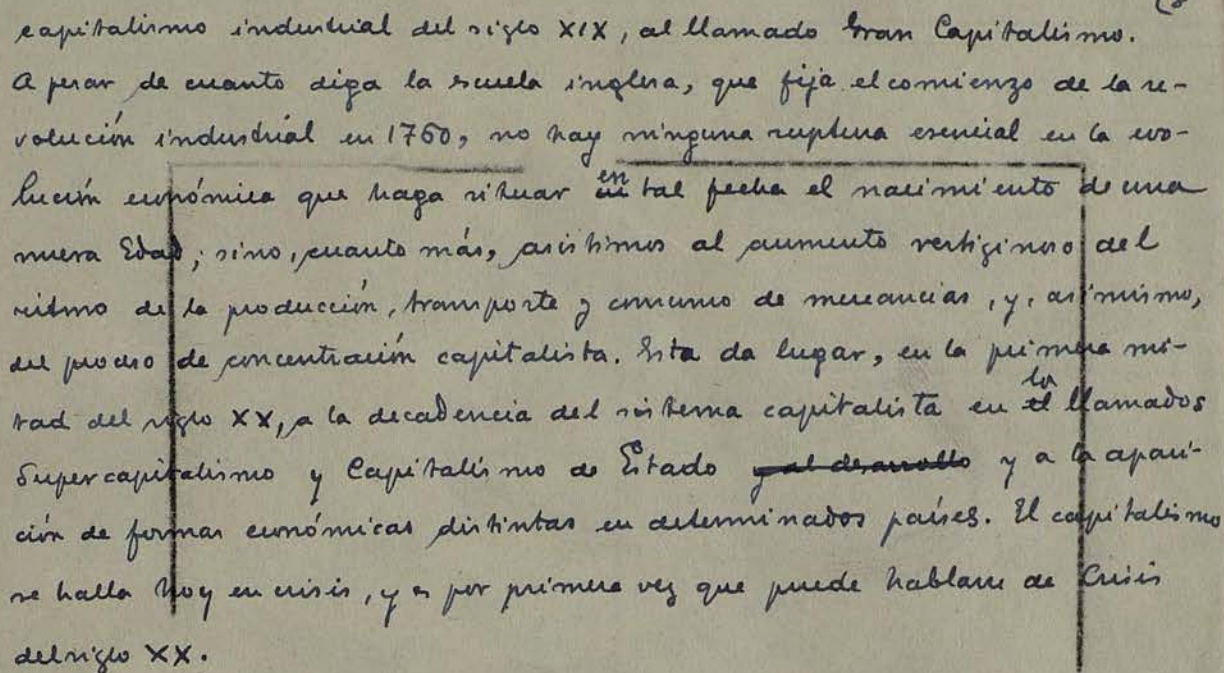 capitalismo industrial del siglo XIX, al llamado Gran Capitalismo.
A pesar de cuanto diga la escuela inglesa, que fija el comienzo de la re-
volución industrial en 1760, no hay ninguna ruptura esencial en la evo-
lución económica que haga situar en tal fecha el nacimiento de una
nueva Edad; sino, cuanto más, asistimos al aumento vertiginoso del
ritmo de la producción, transporte y consumo de mercancías, y, asímismo,
del proceso de concentración capitalista. Esta da lugar, en la primera mi-
tad del siglo XX, a la decadencia del sistema capitalista en los llamados
Supercapitalismo y Capitalismo de Estado y al desarrollo y a la apari-
ción de formas económicas distintas en determinados países. El capitalismo
se halla hoy en crisis, y es por primera vez que puede hablarse de Crisis
del siglo XX.